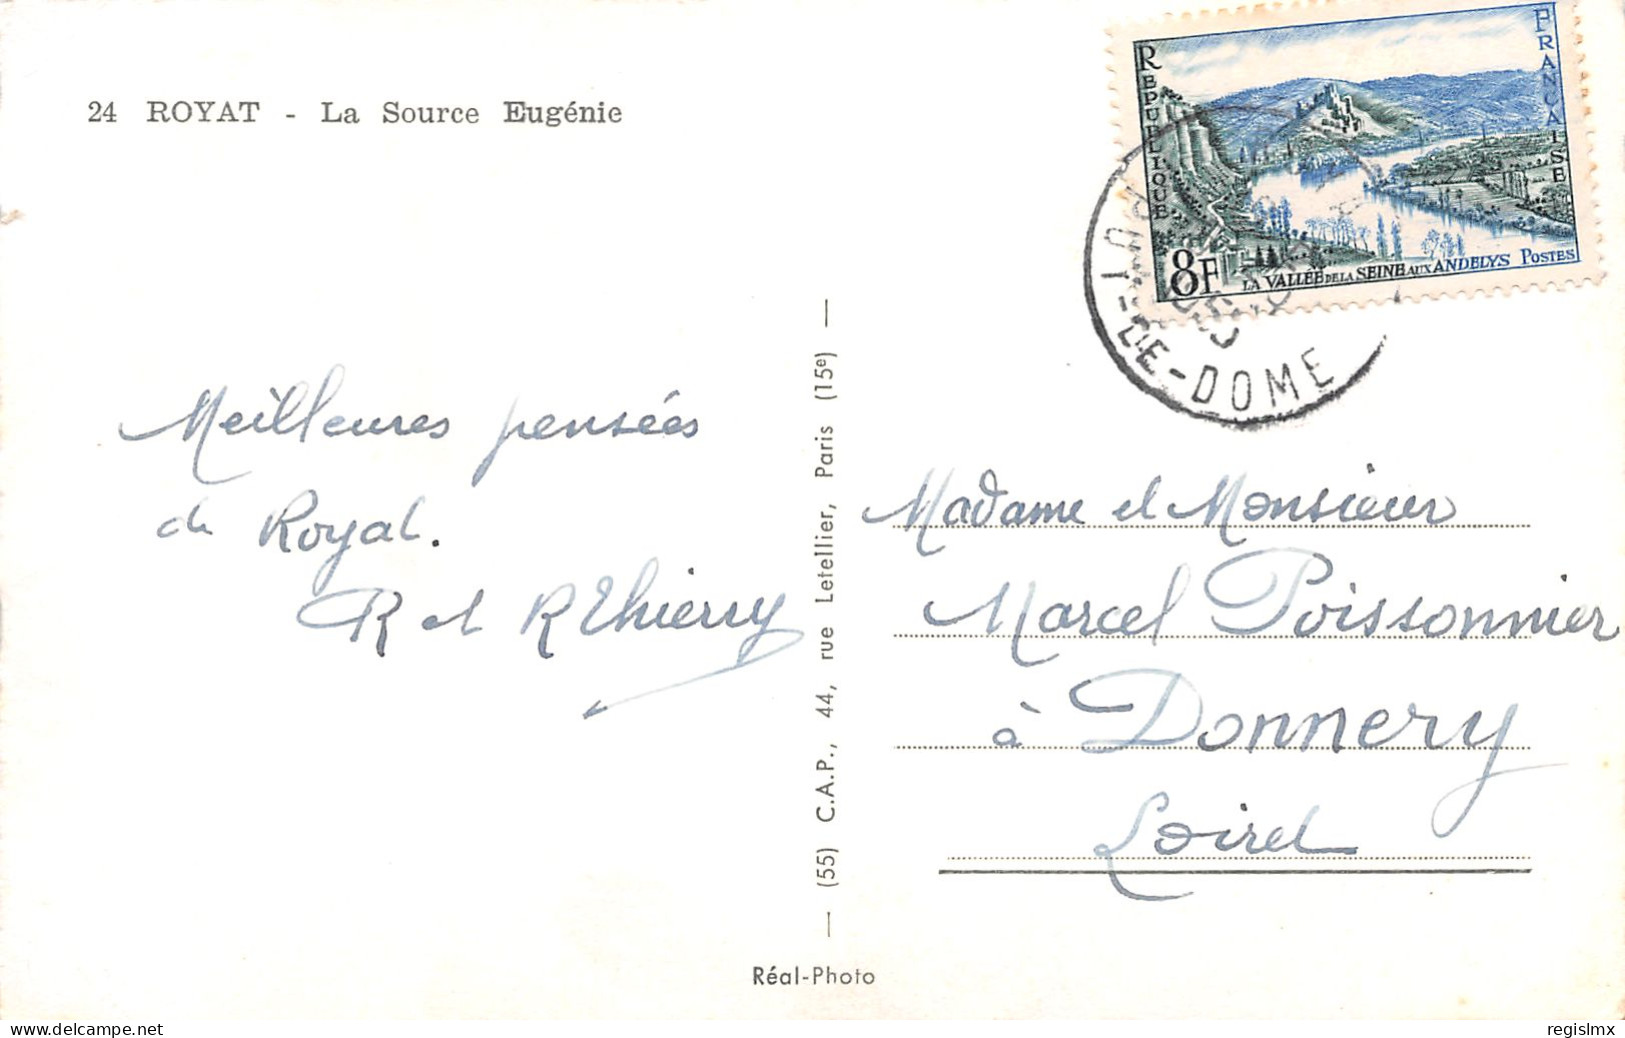 24 ROYAT - La Source Eugénie
RÉPUBLIQUE
FRANÇAISE
8F
LA VALLÉE DE LA SEINE AUX ANDELYS POSTES
PUY-DE-DOME
Meilleures pensées
de Royat.
R et R Thierry
(55) C.A.P., 44, rue Letellier, Paris (15e)
Madame et Monsieur
Marcel Poissonnier
à Donnery
Loiret
Réal-Photo
www.delcampe.net
regislmx